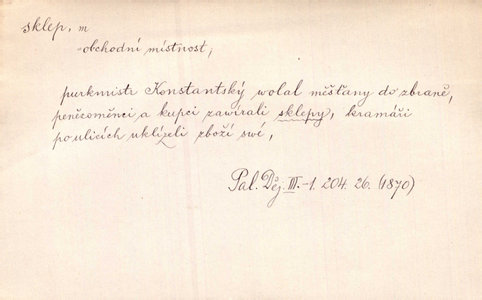 sklep, m
obchodní místnost;
purkmistr Konstantský wolal měšťany do zbraně,
peněžoměnci a kupci zawírali sklepy, kramáři
po ulicích uklízeli zboží swé,
Pal. Děj. III.-1. 204. 26. (1870)